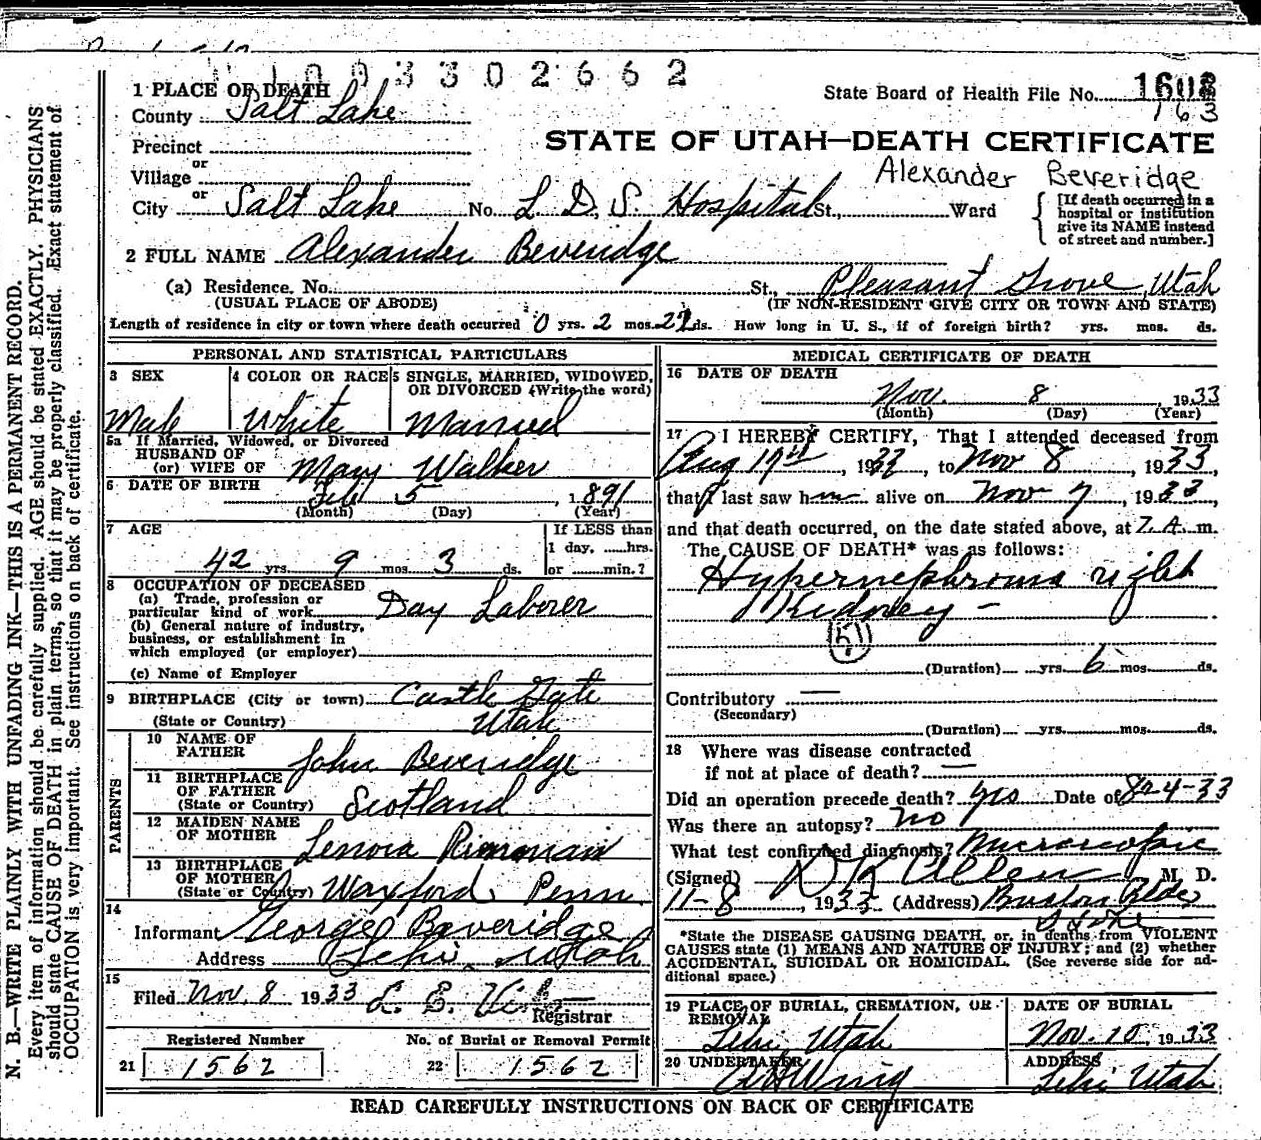 1003302662
1 PLACE OF DEATH
State Board of Health File No. 1602
163
County Salt Lake
STATE OF UTAH—DEATH CERTIFICATE
Precinct
or
Village
Alexander Beveridge
or
City Salt Lake No. L. D. S. Hospital St., Ward
[If death occurred in a hospital or institution give its NAME instead of street and number.]
2 FULL NAME Alexander Beveridge
(a) Residence. No. St., Pleasant Grove, Utah
(USUAL PLACE OF ABODE) (IF NON-RESIDENT GIVE CITY OR TOWN AND STATE)
Length of residence in city or town where death occurred 0 yrs. 2 mos. ds. How long in U. S., if of foreign birth? yrs. mos. ds.
PERSONAL AND STATISTICAL PARTICULARS
3 SEX 4 COLOR OR RACE 5 SINGLE, MARRIED, WIDOWED,
OR DIVORCED (Write the word)
Male White Married
5a If Married, Widowed, or Divorced
HUSBAND OF
(or) WIFE OF Mary Walker
6 DATE OF BIRTH
Feb 5 , 1891
(Month) (Day) (Year)
7 AGE If LESS than
1 day, hrs.
42 yrs. 9 mos. 3 ds. or min.?
8 OCCUPATION OF DECEASED
(a) Trade, profession or
particular kind of work Day Laborer
(b) General nature of industry,
business, or establishment in
which employed (or employer)
(c) Name of Employer
9 BIRTHPLACE (City or town) Castle Gate
(State or Country) Utah
PARENTS
10 NAME OF
FATHER John Beveridge
11 BIRTHPLACE
OF FATHER
(State or Country) Scotland
12 MAIDEN NAME
OF MOTHER Lenora
13 BIRTHPLACE
OF MOTHER
(State or Country) Waxford Penn.
14
Informant George Beveridge
Address Lehi, Utah
15
Filed Nov. 8 1933 L. E.
Registrar
Registered Number No. of Burial or Removal Permit
21 1562 22 1562
MEDICAL CERTIFICATE OF DEATH
16 DATE OF DEATH
Nov. 8 , 1933
(Month) (Day) (Year)
17 I HEREBY CERTIFY, That I attended deceased from
Aug 19th, 1933, to Nov 8, 1933,
that I last saw him alive on Nov 7, 1933,
and that death occurred, on the date stated above, at 7 A. m.
The CAUSE OF DEATH* was as follows:
Hypernephroma right
Kidney -
51
(Duration) yrs. 6 mos. ds.
Contributory —
(Secondary)
(Duration) yrs. mos. ds.
18 Where was disease contracted
if not at place of death? —
Did an operation precede death? yes Date of -4-33
Was there an autopsy? no
What test confirmed diagnosis? Microscopic
(Signed) D K Allen, M. D.
11-8, 1933 (Address) Boston Bldg
*State the DISEASE CAUSING DEATH, or, in deaths from VIOLENT
CAUSES state (1) MEANS AND NATURE OF INJURY; and (2) whether
ACCIDENTAL, SUICIDAL OR HOMICIDAL. (See reverse side for ad-
ditional space.)
19 PLACE OF BURIAL, CREMATION, OR
REMOVAL DATE OF BURIAL
Lehi, Utah Nov. 10, 1933
20 UNDERTAKER ADDRESS
Wing Lehi Utah
READ CAREFULLY INSTRUCTIONS ON BACK OF CERTIFICATE
N. B.—WRITE PLAINLY WITH UNFADING INK—THIS IS A PERMANENT RECORD.
Every item of information should be carefully supplied. AGE should be stated EXACTLY. PHYSICIANS
should state CAUSE OF DEATH in plain terms, so that it may be properly classified. Exact statement of
OCCUPATION is very important. See instructions on back of certificate.